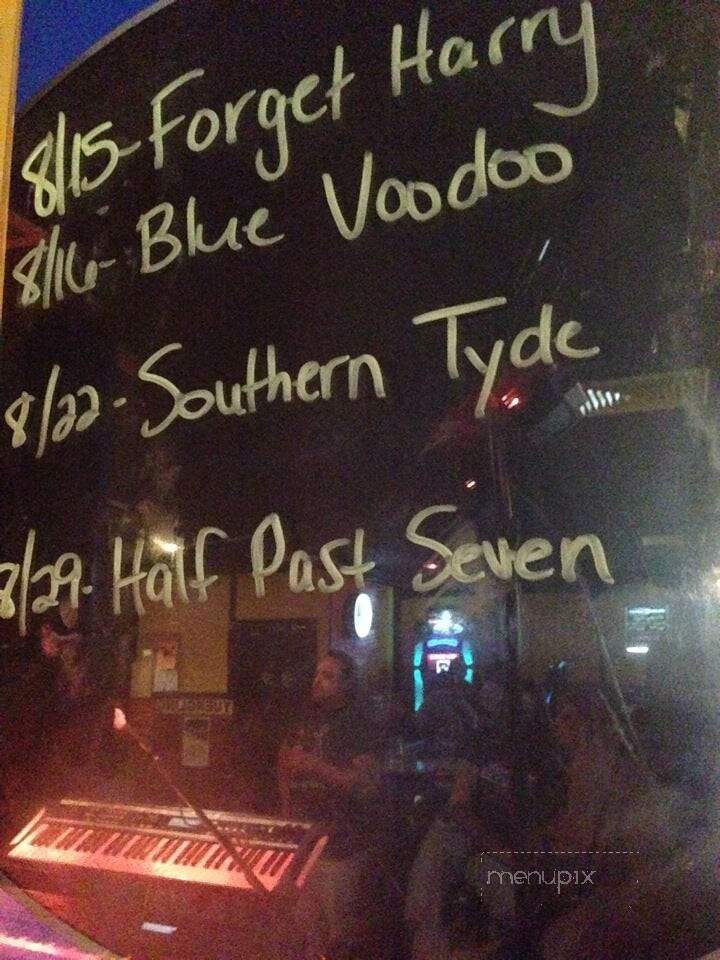 8/15-Forget Harry
8/16-Blue Voodoo
8/22-Southern Tyde
8/29-Half Past Seven
menupix